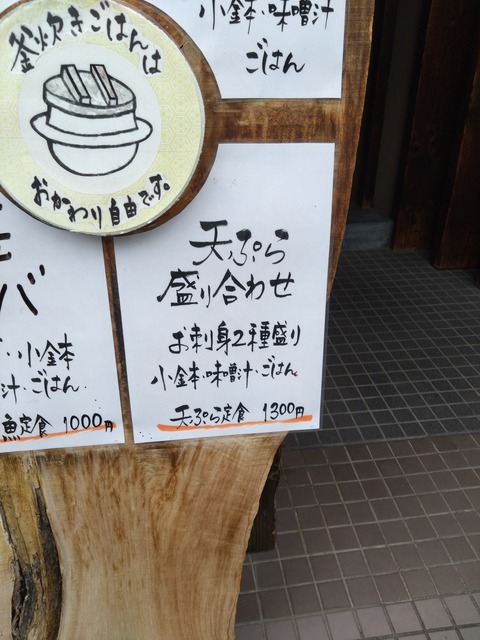 釜炊きごはんは
おかわり自由です。
小鉢・味噌汁
ごはん
天ぷら
盛り合わせ
お刺身2種盛り
小鉢・味噌汁・ごはん。
天ぷら定食 1300円
バ
・小鉢
汁・ごはん
魚定食 1000円